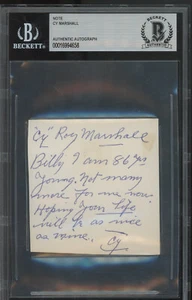 BECKETT
NOTE
CY MARSHALL
AUTHENTIC AUTOGRAPH
00016994658
BECKETT
"Cy" Roy Marshall
Billy I am 86 yrs
Young. Not many
more for me now
Hoping your life
will be as nice
as mine.
Cy